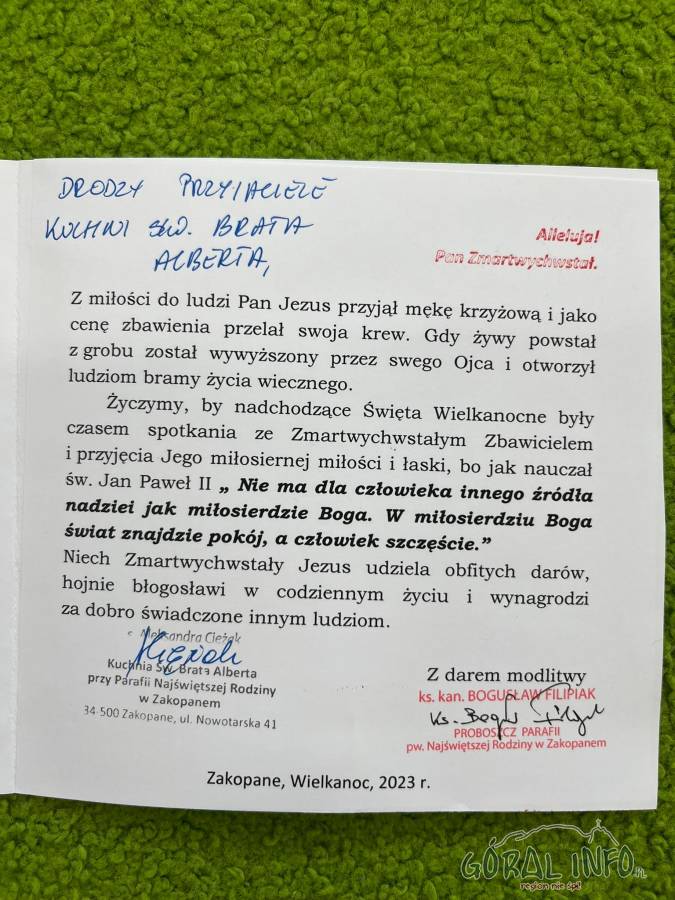 DRODZY PRZYJACIELE
KUCHNI ŚW. BRATA
ALBERTA,
Alleluja!
Pan Zmartwychwstał.
Z miłości do ludzi Pan Jezus przyjął mękę krzyżową i jako
cenę zbawienia przelał swoja krew. Gdy żywy powstał
z grobu został wywyższony przez swego Ojca i otworzył
ludziom bramy życia wiecznego.
Życzymy, by nadchodzące Święta Wielkanocne były
czasem spotkania ze Zmartwychwstałym Zbawicielem
i przyjęcia Jego miłosiernej miłości i łaski, bo jak nauczał
św. Jan Paweł II „ Nie ma dla człowieka innego źródła
nadziei jak miłosierdzie Boga. W miłosierdziu Boga
świat znajdzie pokój, a człowiek szczęście.”
Niech Zmartwychwstały Jezus udziela obfitych darów,
hojnie błogosławi w codziennym życiu i wynagrodzi
za dobro świadczone innym ludziom.
Aleksandra Ciężak
Kuchnia Św. Brata Alberta
przy Parafii Najświętszej Rodziny
w Zakopanem
34-500 Zakopane, ul. Nowotarska 41
Z darem modlitwy
ks. kan. BOGUSŁAW FILIPIAK
Ks. Bogusław Filipiak
PROBOSZCZ PARAFII
pw. Najświętszej Rodziny w Zakopanem
Zakopane, Wielkanoc, 2023 r.
GÓRAL INFO.PL
region nie śpi!